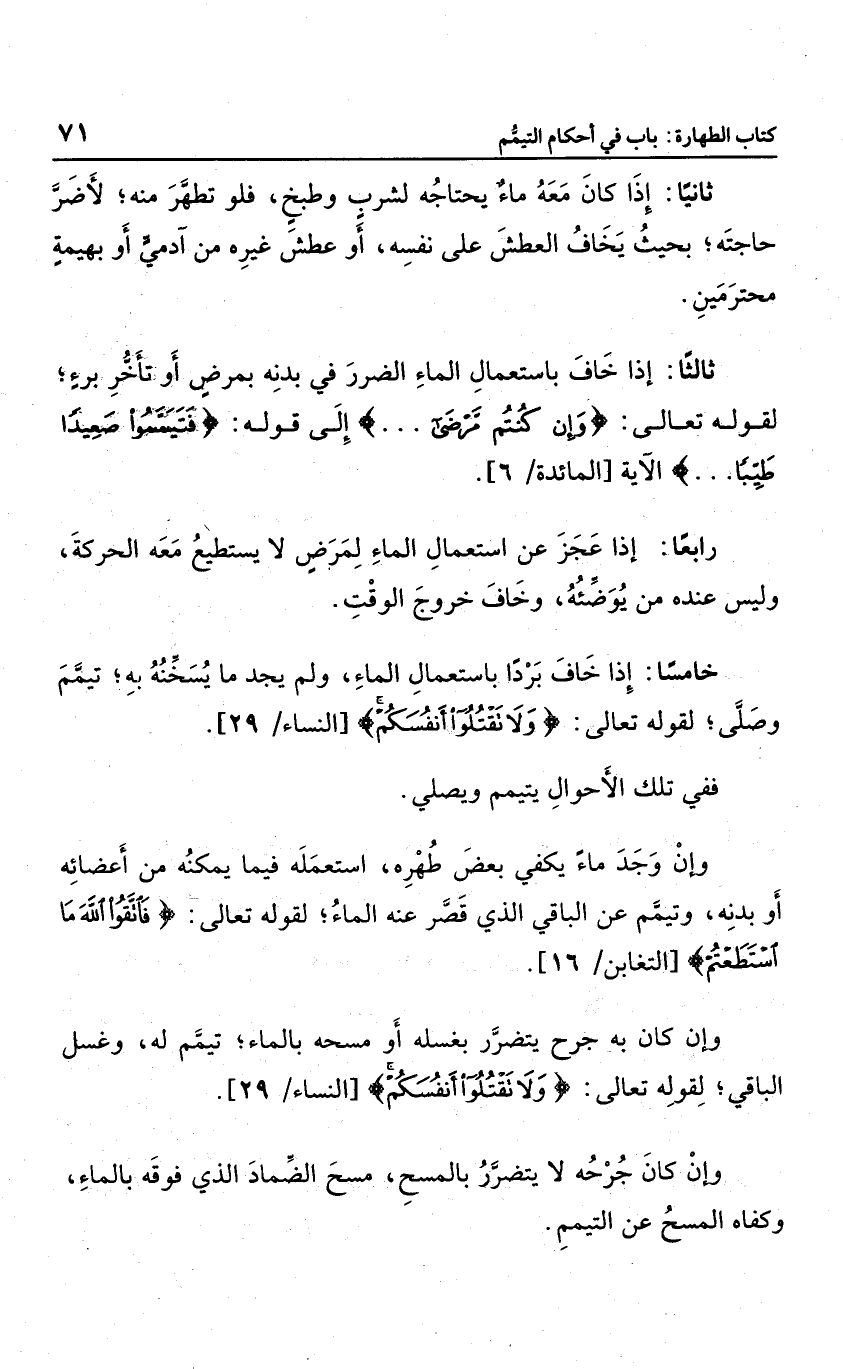 كتاب الطهارة: باب في أحكام التيمُّم ٧١
ثانيًا: إِذَا كانَ مَعَهُ ماءٌ يحتاجُه لشربٍ وطبخٍ، فلو تطهَّرَ منه؛ لأَضَرَّ
حاجتَه؛ بحيثُ يَخَافُ العطشَ على نفسِه، أَو عطشَ غيرِه من آدميٍّ أَو بهيمةٍ
محترَمَينِ.
ثالثًا: إذا خَافَ باستعمالِ الماءِ الضررَ في بدنِه بمرضٍ أَو تأَخُّرِ برءٍ؛
لقولـه تعـالـى: ﴿وَإِن كُنتُم مَّرْضَىٰٓ ...﴾ إِلَـى قـولـه: ﴿فَتَيَمَّمُوا۟ صَعِيدًا
طَيِّبًا...﴾ الآية [المائدة/ ٦].
رابعًا: إذا عَجَزَ عن استعمالِ الماءِ لِمَرَضٍ لا يستطيعُ مَعَه الحركةَ،
وليس عنده من يُوَضِّئُهُ، وخَافَ خروجَ الوقْتِ.
خامسًا: إِذا خَافَ بَرْدًا باستعمالِ الماءِ، ولم يجد ما يُسَخِّنُهُ بهِ؛ تيمَّمَ
وصَلَّى؛ لقوله تعالى: ﴿وَلَا تَقْتُلُوٓا۟ أَنفُسَكُمْ ۚ﴾ [النساء/ ٢٩].
ففي تلك الأَحوالِ يتيمم ويصلي.
وإنْ وَجَدَ ماءً يكفي بعضَ طُهْرِه، استعمَلَه فيما يمكنُه من أَعضائِه
أَو بدنِه، وتيمَّم عن الباقي الذي قَصَّر عنه الماءُ؛ لقوله تعالى: ﴿فَٱتَّقُوا۟ ٱللَّهَ مَا
ٱسْتَطَعْتُمْ﴾ [التغابن/ ١٦].
وإن كان به جرح يتضرَّر بغسله أَو مسحه بالماء؛ تيمَّم له، وغسل
الباقي؛ لِقولِه تعالى: ﴿وَلَا تَقْتُلُوٓا۟ أَنفُسَكُمْ ۚ﴾ [النساء/ ٢٩].
وإنْ كانَ جُرْحُه لا يتضرَّرُ بالمسحِ، مسحَ الضِّمادَ الذي فوقَه بالماءِ،
وكفاه المسحُ عن التيممِ.